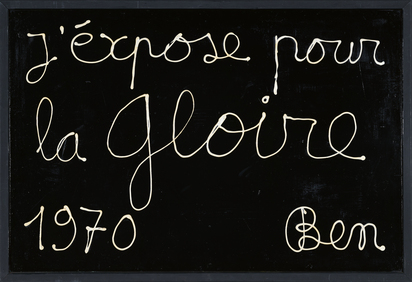 j'expose pour
la gloire
1970 Ben